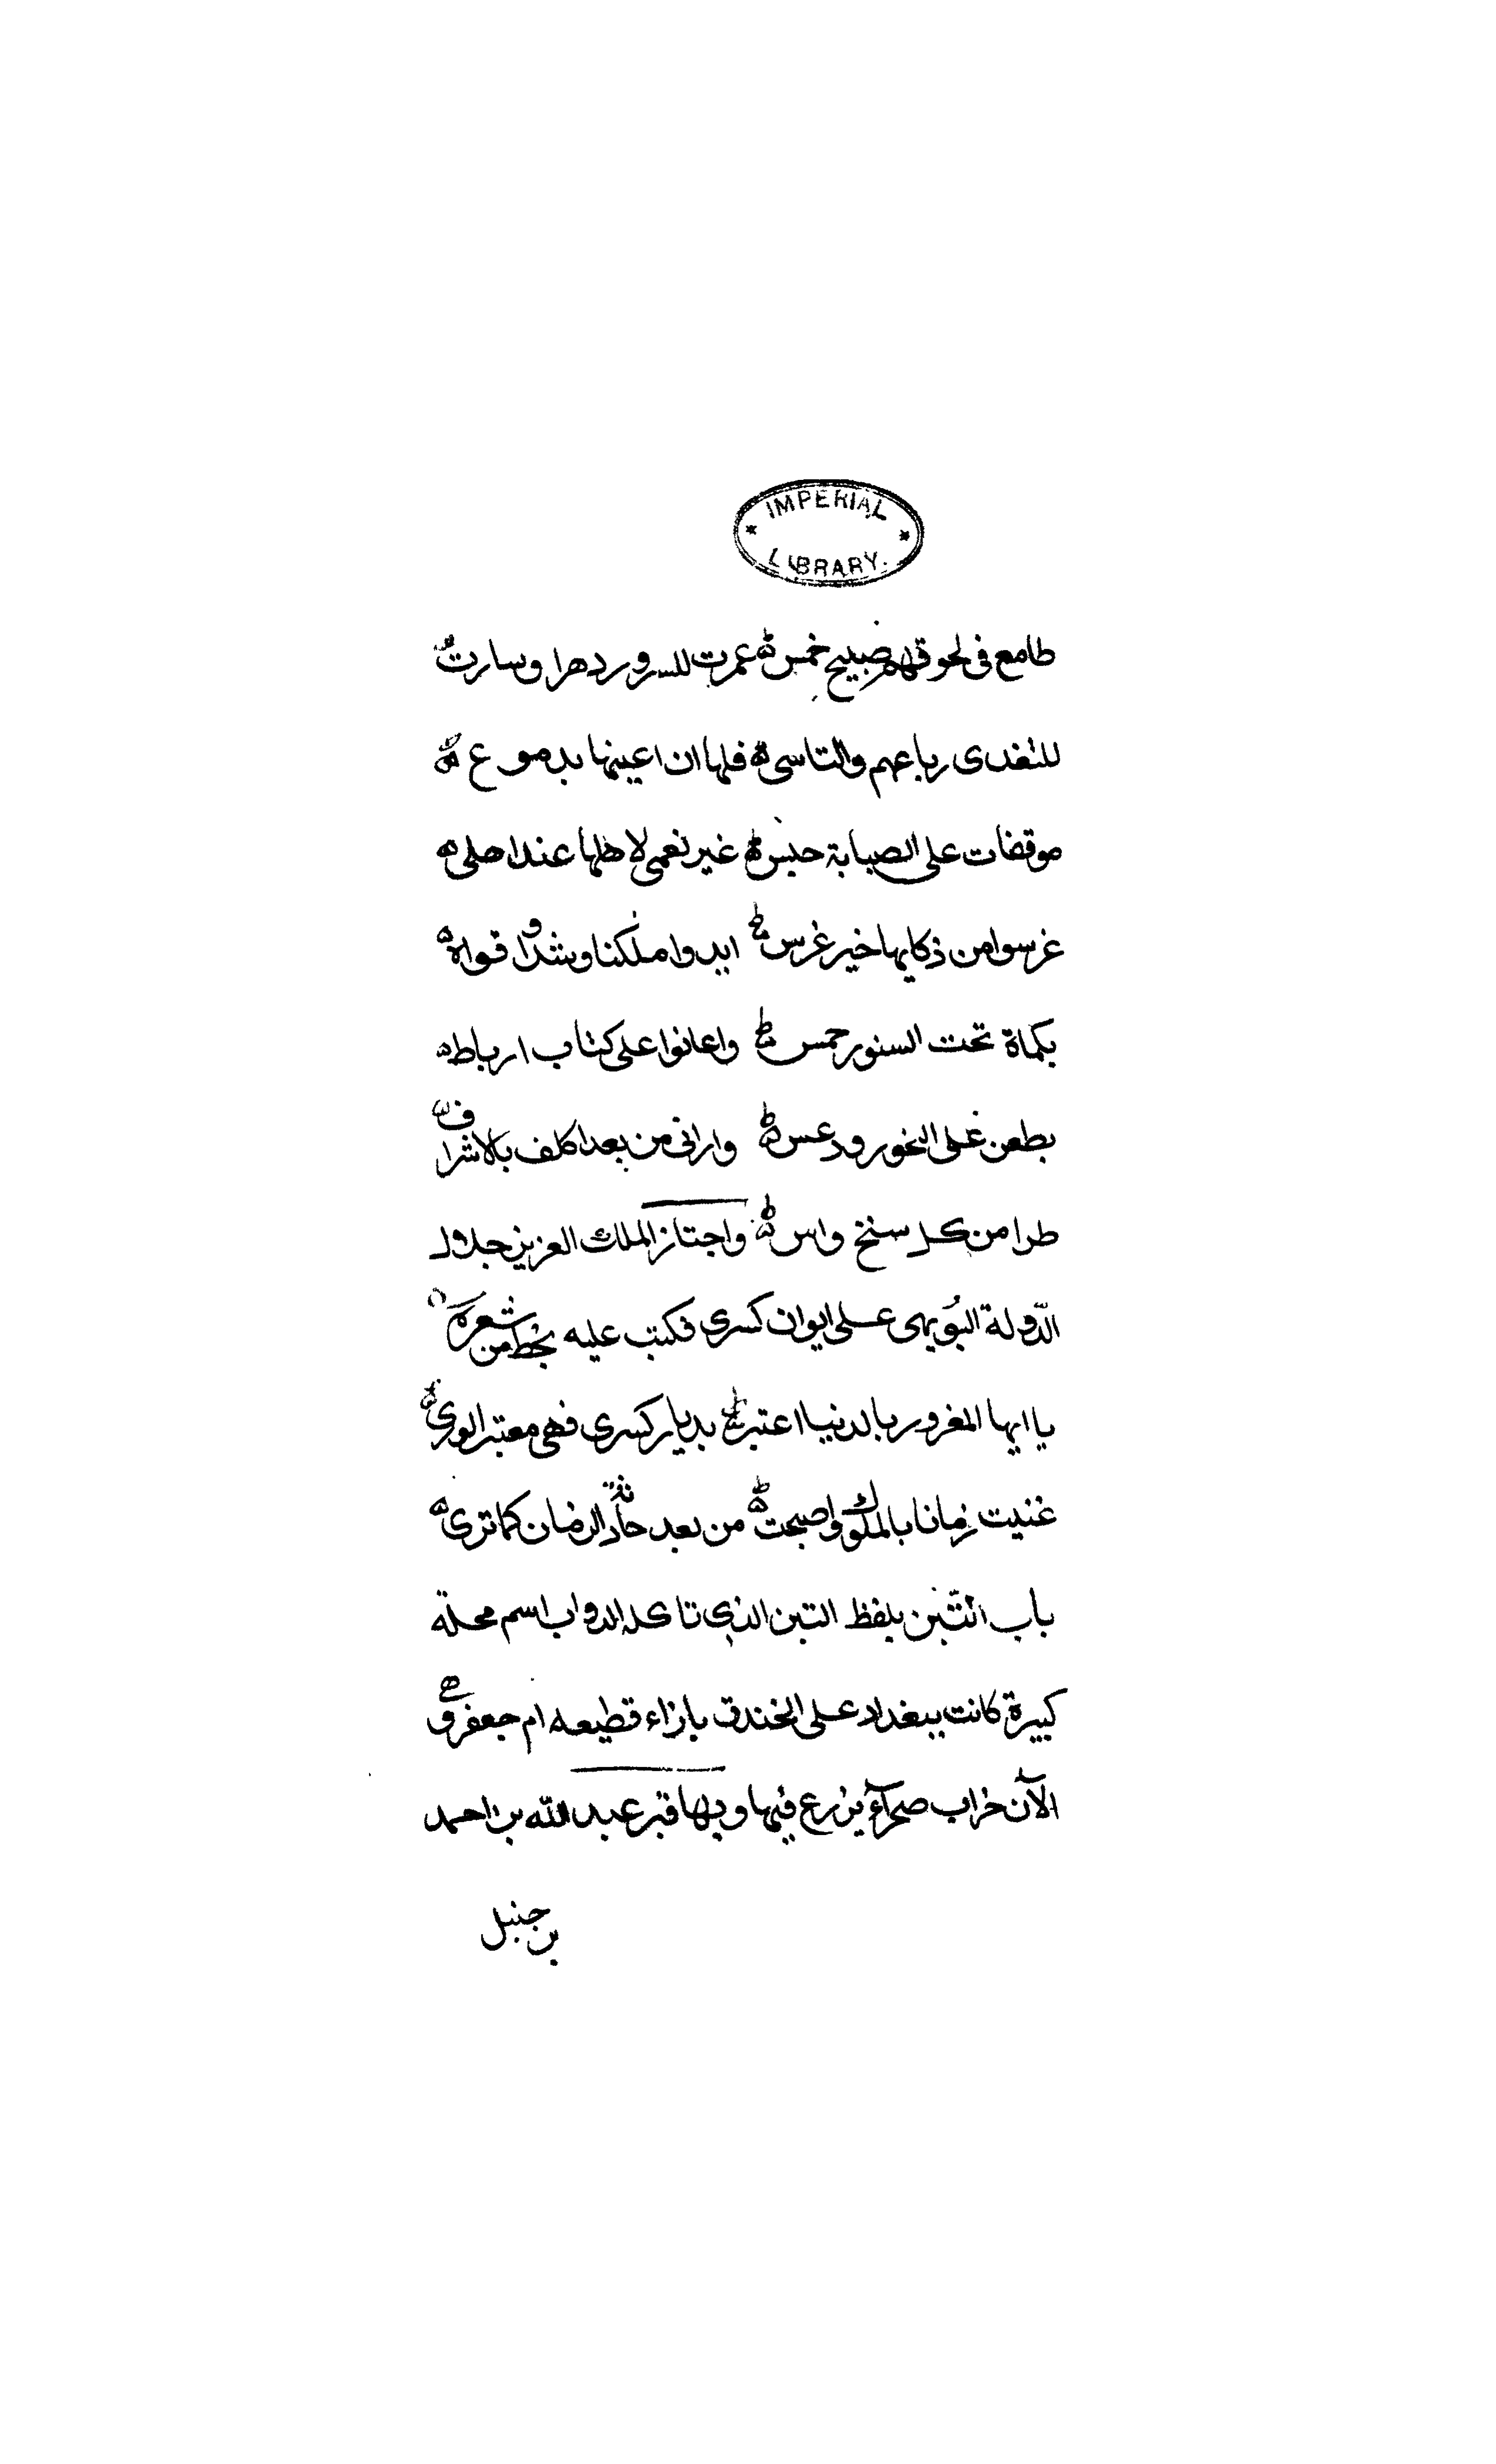 IMPERIAL
LIBRARY.
طامع فى لحوقهم صبيح خمس عمرت للسرور دهرا وسارت
للتغدى رباعهم والتاسى فلها ان اعينها بدموع
موقفات على الصبابة حبس غير نعمى لاهلها عند اهلى
غرسوا من ذكايها خير غرس ايدوا ملكنا وشدوا قواه
بكماة تحت السنور حمس واعانوا على كتاب ارباط
بطعن على النحور ودعس وارانى من بعد اكلف بالاشراف
طرا من كل سنخ واس واجتاز الملك العزيز جلال
الدّولة البُويهى على ايوان كسرى فكتب عليه بخط من شعره
يا ايها المغرور بالدنيا اعتبر بديار كسرى فهى معتبر الورى
غنيت زمانا بالملوك واصبحت من بعد حادثة الزمان كما ترى
باب التّبن بلفظ التبن الذى تاكله الدواب اسم محلة
كبيرة كانت ببغداد على الخندق بازاء قطيعه ام جعفر وهى
الآن خراب صحرآء يزرع فيها وبها قبر عبد الله بن احمد
بن جنبل